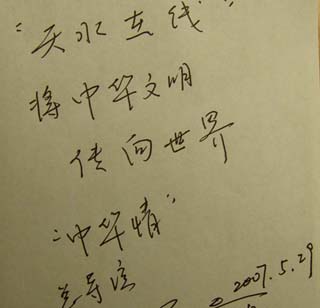 “天水在线”
将中华文明
传向世界
“中华情”
总导演
2007.5.29